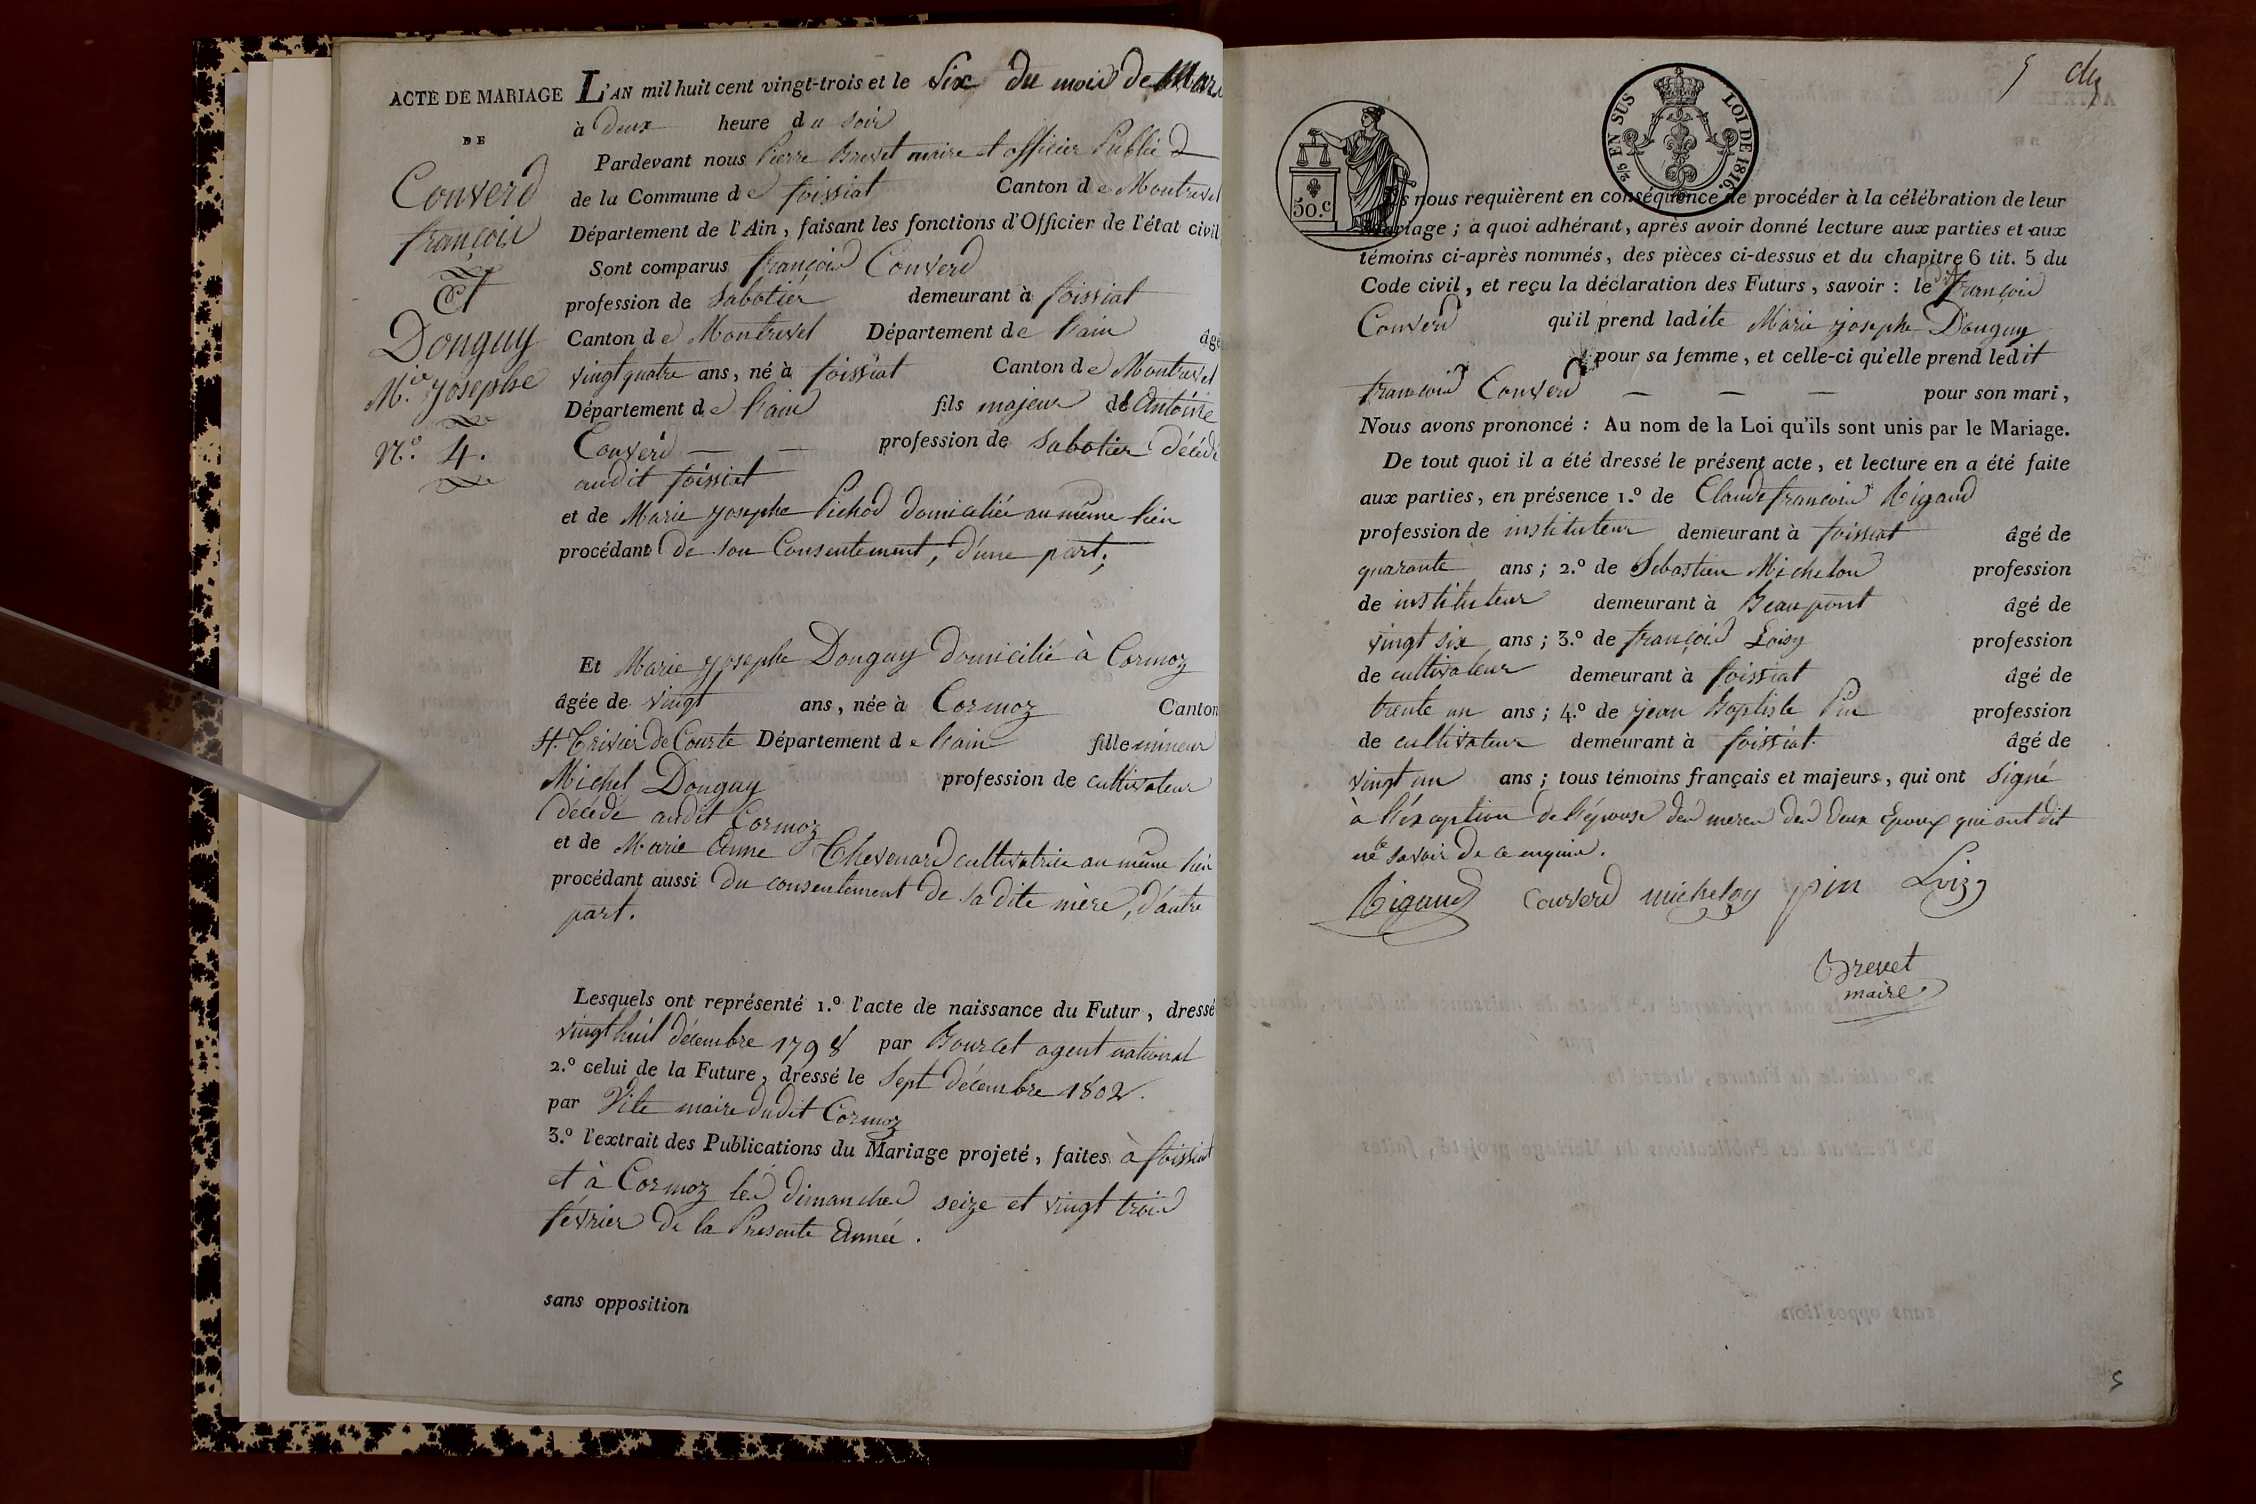 ACTE DE MARIAGE
DE
Converd
françois
Et
Donguy
M.ie josephe
N.° 4.
L'AN mil huit cent vingt-trois et le six du mois de Mars
à deux heure du soir
Pardevant nous Pierre Brevet maire et officier Public
de la Commune de foissiat Canton de Montrevel
Département de l'Ain, faisant les fonctions d'Officier de l'état civil
Sont comparus françois Converd
profession de sabotier demeurant à foissiat
Canton de Montrevel Département de Lain âgé
vingt quatre ans, né à foissiat Canton de Montrevel
Département de Lain fils majeur de Antoine
Converd — — profession de sabotier décédé
audit foissiat
et de Marie josephe Pichod domiciliée au même lieu
procédant de son Consentement, d'une part;
Et Marie josephe Donguy domicilié à Cormoz
âgée de vingt ans, née à Cormoz Canton
St. Trivier de Courte Département de Lain fille mineur
Michel Donguy profession de cultivateur
décédé audit Cormoz
et de Marie Anne Chevenard cultivatrice au même lieu
procédant aussi du consentement de sa dite mère, d'autre
part.
Lesquels ont représenté 1.° l'acte de naissance du Futur, dressé
vingt huit décembre 1798 par Bourcet agent national
2.° celui de la Future, dressé le sept décembre 1802.
par Vite maire dudit Cormoz
3.° l'extrait des Publications du Mariage projeté, faites à foissiat
et à Cormoz les dimanches seize et vingt trois
février de la Presente Année.
sans opposition
5
2/5 EN SUS LOI DE 1816.
50.c
nous requièrent en conséquence de procéder à la célébration de leur
mariage; a quoi adhérant, après avoir donné lecture aux parties et aux
témoins ci-après nommés, des pièces ci-dessus et du chapitre 6 tit. 5 du
Code civil, et reçu la déclaration des Futurs, savoir: le dit françois
Converd qu'il prend ladite Marie josephe Donguy
pour sa femme, et celle-ci qu'elle prend ledit
françois Converd — — — pour son mari,
Nous avons prononcé: Au nom de la Loi qu'ils sont unis par le Mariage.
De tout quoi il a été dressé le présent acte, et lecture en a été faite
aux parties, en présence 1.° de Claude françois Rigaud
profession de instituteur demeurant à foissiat âgé de
quarante ans; 2.° de Sebastien Michelon profession
de instituteur demeurant à Beaupont âgé de
vingt six ans; 3.° de françois Loisy profession
de cultivateur demeurant à foissiat âgé de
trente un ans; 4.° de jean Baptiste Pin profession
de cultivateur demeurant à foissiat. âgé de
vingt un ans; tous témoins français et majeurs, qui ont signé
à l'éxception de l'épouse des meres des deux Epoux qui ont dit
ne le savoir de ce enquis.
Rigaud Converd michelon pin Loizy
Brevet
maire
5